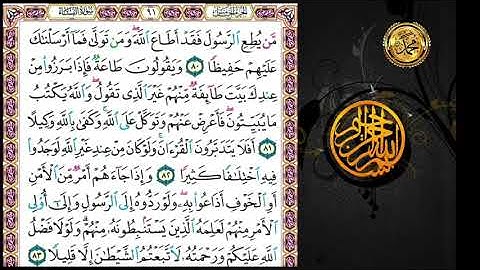 مَّن يُطِعِ ٱلرَّسُولَ فَقَدْ أَطَاعَ ٱللَّهَ وَمَن تَوَلَّىٰ فَمَآ أَرْسَلْنَٰكَ
عَلَيْهِمْ حَفِيظًا ٨٠ وَيَقُولُونَ طَاعَةٌ فَإِذَا بَرَزُوا۟ مِنْ
عِندِكَ بَيَّتَ طَآئِفَةٌ مِّنْهُمْ غَيْرَ ٱلَّذِى تَقُولُ وَٱللَّهُ يَكْتُبُ
مَا يُبَيِّتُونَ فَأَعْرِضْ عَنْهُمْ وَتَوَكَّلْ عَلَى ٱللَّهِ وَكَفَىٰ بِٱللَّهِ وَكِيلًا
٨١ أَفَلَا يَتَدَبَّرُونَ ٱلْقُرْءَانَ وَلَوْ كَانَ مِنْ عِندِ غَيْرِ ٱللَّهِ لَوَجَدُوا۟
فِيهِ ٱخْتِلَٰفًا كَثِيرًا ٨٢ وَإِذَا جَآءَهُمْ أَمْرٌ مِّنَ ٱلْأَمْنِ
أَوِ ٱلْخَوْفِ أَذَاعُوا۟ بِهِۦ وَلَوْ رَدُّوهُ إِلَى ٱلرَّسُولِ وَإِلَىٰٓ أُو۟لِى
ٱلْأَمْرِ مِنْهُمْ لَعَلِمَهُ ٱلَّذِينَ يَسْتَنۢبِطُونَهُۥ مِنْهُمْ وَلَوْلَا فَضْلُ
ٱللَّهِ عَلَيْكُمْ وَرَحْمَتُهُۥ لَٱتَّبَعْتُمُ ٱلشَّيْطَٰنَ إِلَّا قَلِيلًا ٨٣